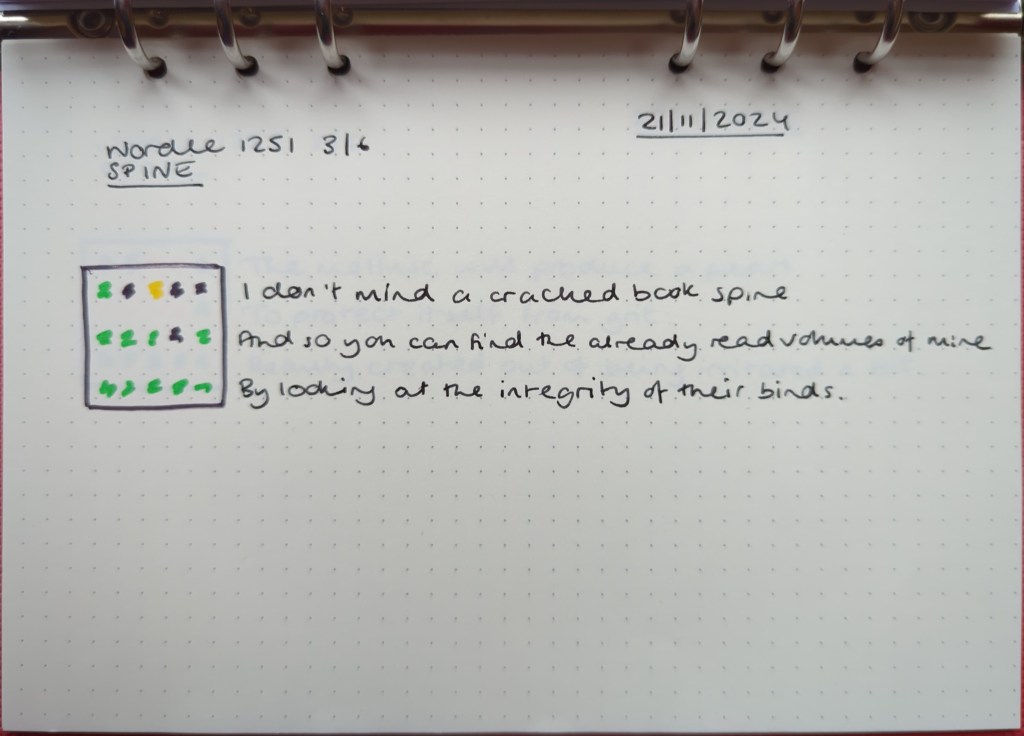 21/11/2024
Wordle 1251 3/6
SPINE
I don't mind a cracked book spine
And so you can find the already read volumes of mine
By looking at the integrity of their binds.